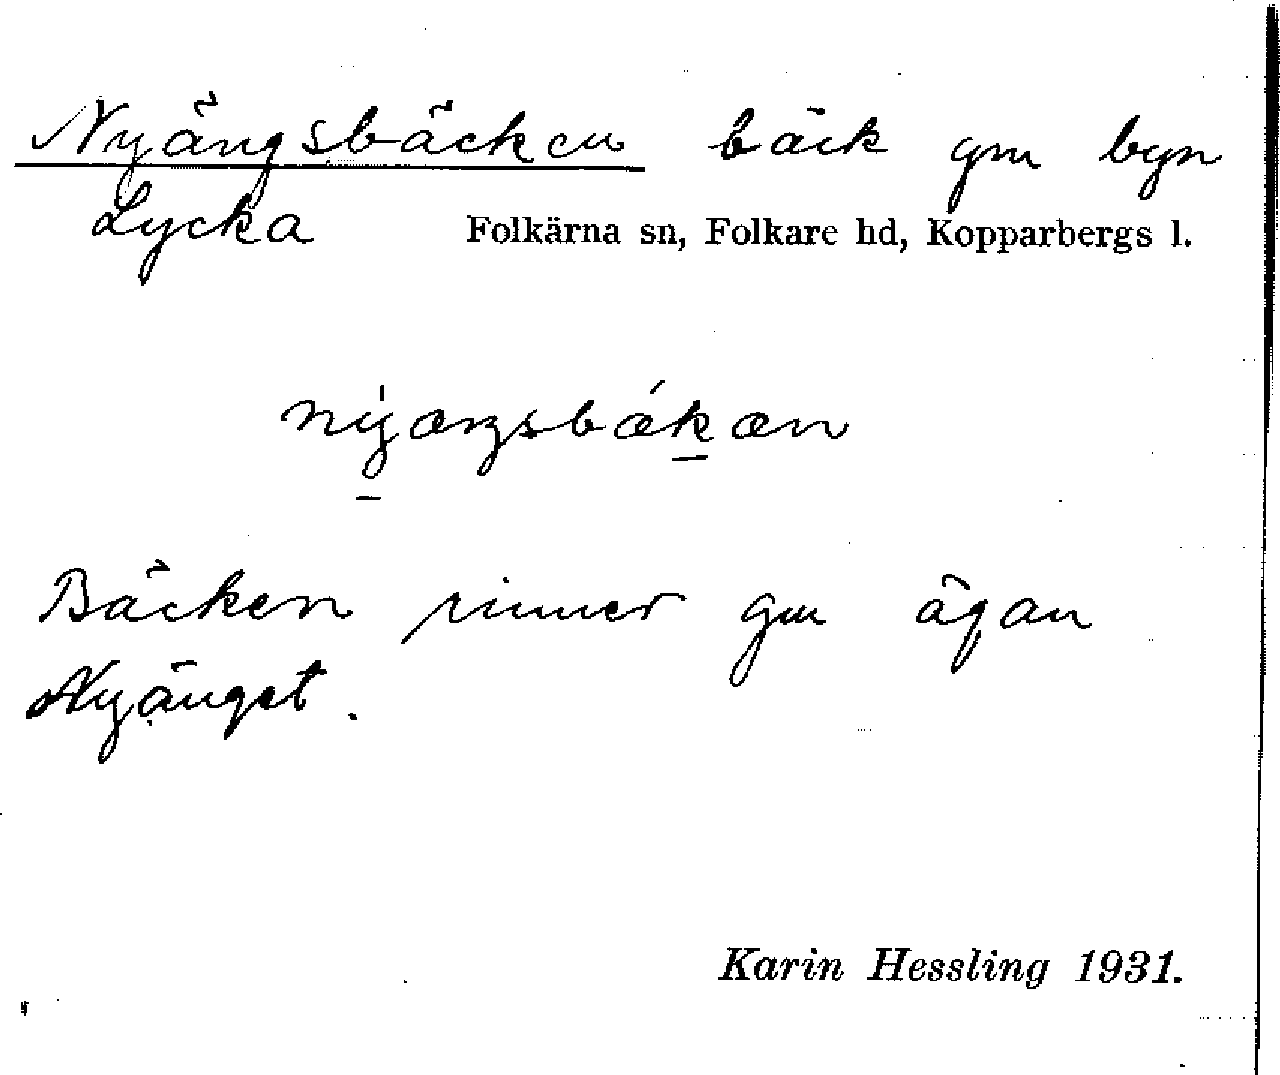 Nyängsbäcken bäck gm byn
Lycka Folkärna sn, Folkare hd, Kopparbergs l.
Bäcken rinner gm ägan
Nyänget.
Karin Hessling 1931.